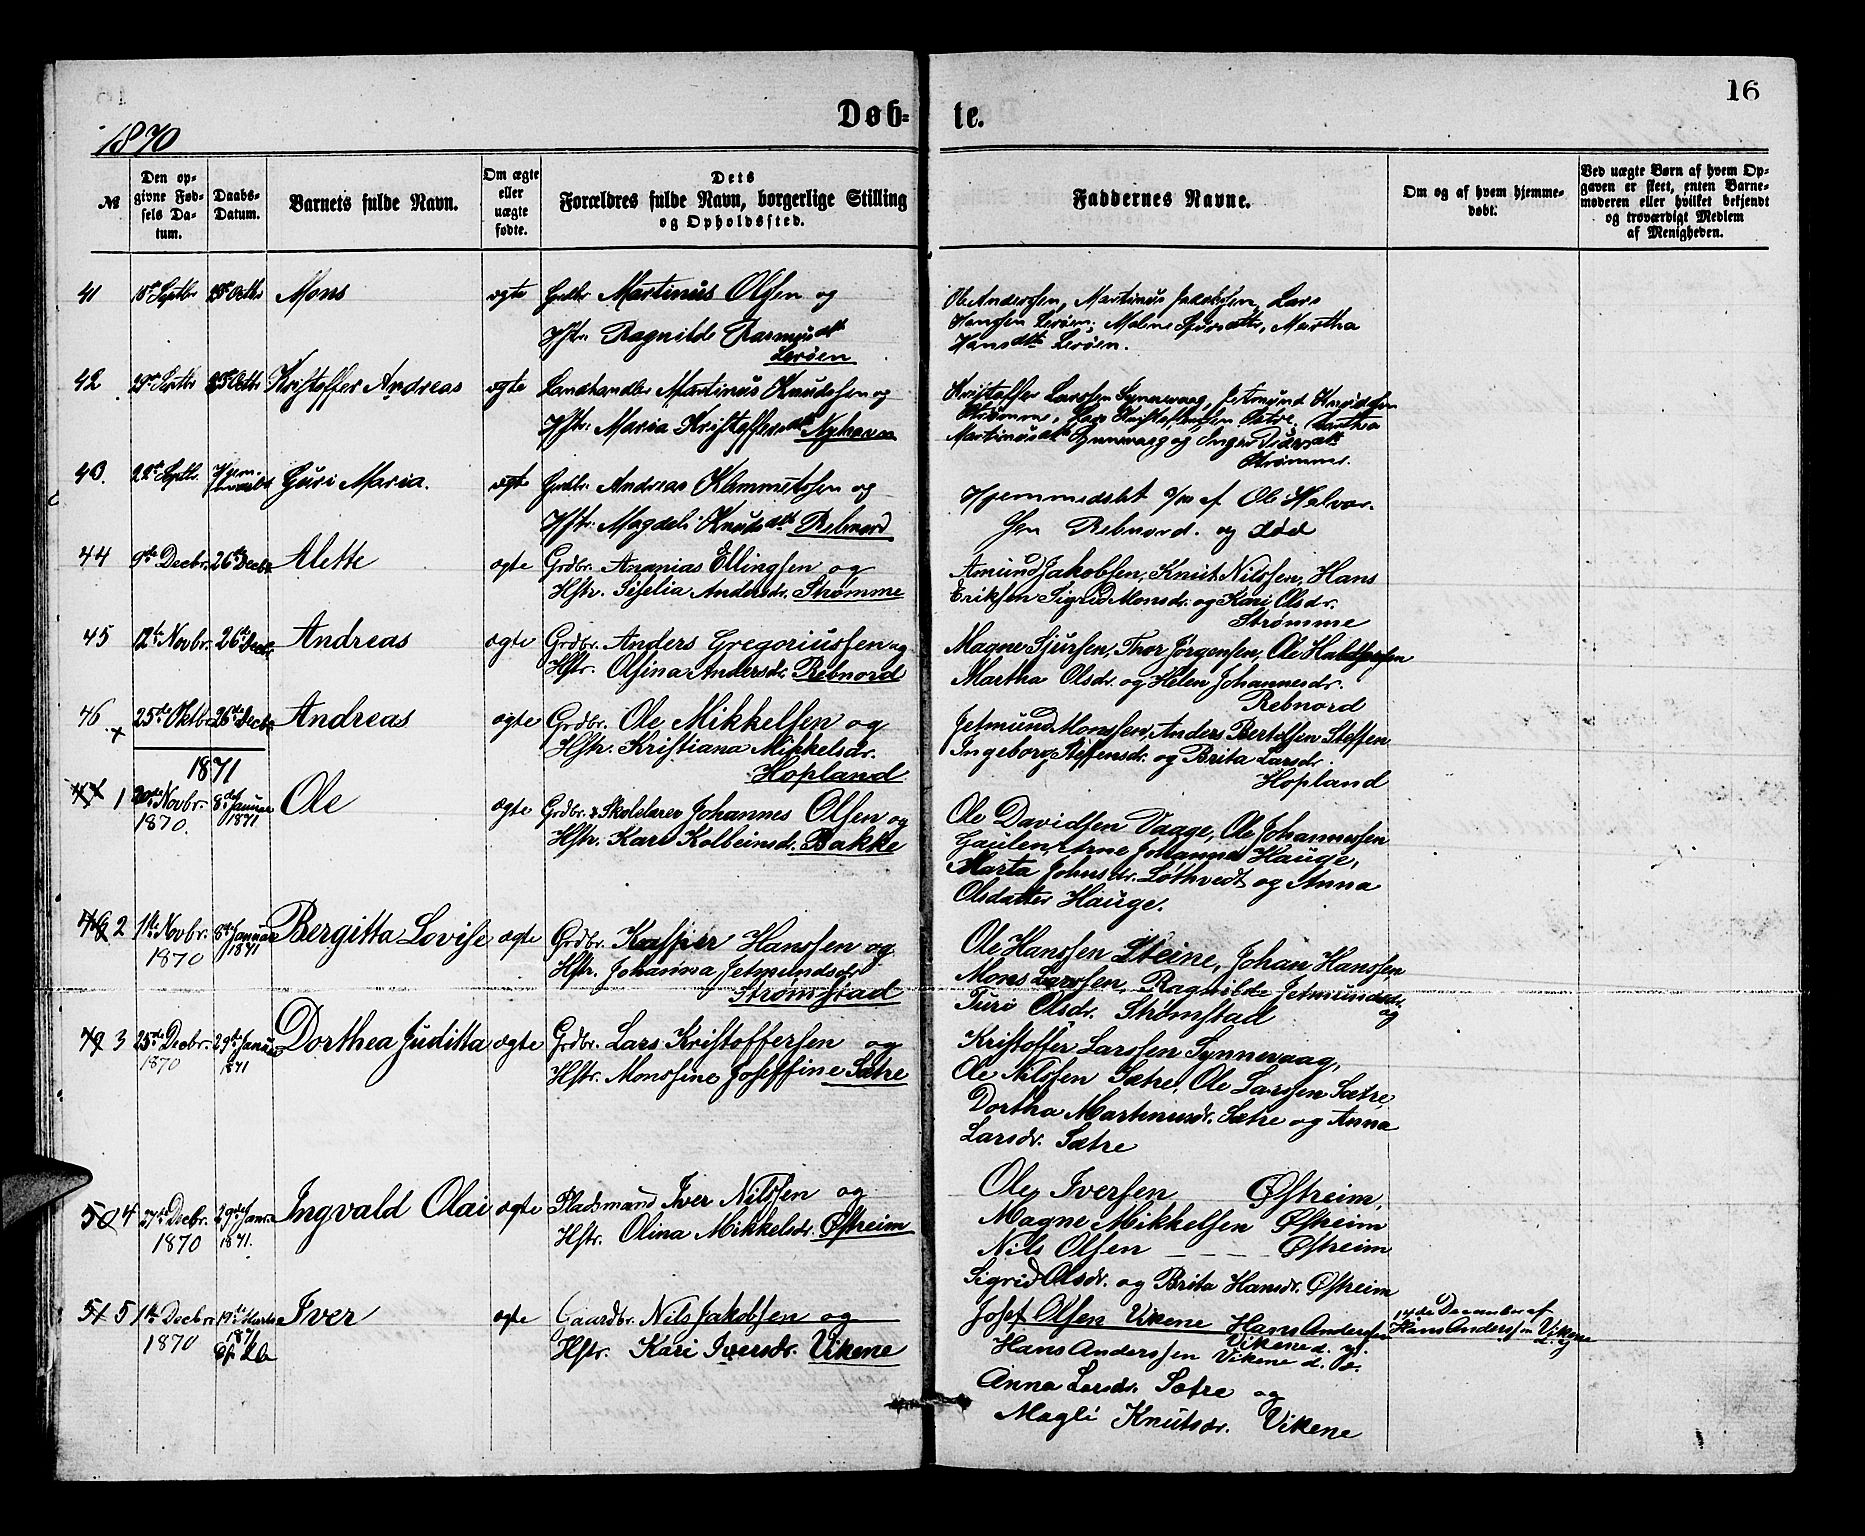 16
Døb= te.
1870
№
Den op-
givne Fød-
sels Da-
tum.
Daabs-
Datum.
Barnets fulde Navn.
Om ægte
eller
uægte
fødte.
Dets
Forældres fulde Navn, borgerlige Stilling
og Opholdssted.
Faddernes Navne.
Om og af hvem hjemme-
døbt.
Ved uægte Børn af hvem Op-
gaven er skeet, enten Barne-
moderen eller hvilket bekjendt
og troværdigt Medlem
af Menigheden.
41 18de Septbr Mons ægte Grdbr Martinus Olsen og
Hstr. Ragnilde Rasmusdtr
Lerøen
Ole Anderssen, Martinus Jakobsen, Lars
Hanssen Lerøen; Malene Sjursdtr, Martha
Hansdtr Lerøen.
42 Kristoffer Andreas ægte Landhandler Martinus Knudsen og
Hstr. Maria Kristoffersdtr Nyhavn
Kristoffer Larssen Synnevaag, Jetmund Knudsen
Strømme, Lars Kristoffersen Sætre,
Martinusdtr Synnevaag og Inger
Strømme.
43. 22de Septbr. Guri Maria. ægte Grdbr. Andreas og
Hstr. Magdeli Knudsdtr Rebnord
Hjemmedøbt af Ole Halvor-
sen Rebnord. og død
44 9de Decbr. 26de Decbr Alette ægte Grdbr. Ananias Ellingsen og
Hstr. Siselia Andersdr. Strømme
Amund Jakobsen, Knut Nilssen, Hans
Eriksen Sigrid Monsdr. og Kari Olsdr.
Strømme
45 12te Novbr. 26de Decbr. Andreas ægte Grdbr. Anders Gregoriussen og
Hstr. Olsina Andersdr. Rebnord
Magne Sjursen, Thor Jørgensen, Ole
Martha Olsdr. og Helen Johannesdr.
Rebnord
46 x 25de Oktbr 26de Decbr Andreas ægte Grdbr. Ole Mikkelsen og
Hstr. Kristiana Mikkelsdr.
Hopland
Jetmund Monssen, Anders Bertelsen Steffen
Ingeborg Steffensdr. og Brita Larsdr.
Hopland
1871
47 1 20de Novbr. 8de Januar Ole ægte Grdbr. & Skolelærer Johannes Olsen og
1870. 1871 Hstr. Kari Kolbeinsdr. Bakke
Ole Davidsen Vaage, Ole Johannessen
Gaulen, Arne Johannes Hauge,
Marta Johnsdr. Løthvedt og Anna
Olsdatter Hauge.
48 2 1ste Novbr. 8de Januar Bergitta Lovise ægte Grdbr. Kasper Hanssen og
1870 1871 Hstr. Johanna Jetmundsdr
Strømstad
Ole Hanssen Steine, Johan Hanssen
Mons Larssen, Ragnilde Jetmundsdr.
Turi Olsdr. Strømstad og
49 3 25de Decbr. 29de Januar Dorthea Juditta ægte Grdbr. Lars Kristoffersen og
1870 1871 Hstr. Monssine Joseffine Sætre
Kristoffer Larssen Synnevaag,
Ole Nilssen Sætre, Ole Larssen Sætre,
Dortha Martinusdr. Sætre og Anna
Larsdr. Sætre
50 4 27de Decbr. 29de Janr. Ingvald Olai ægte Pladsmand Iver Nilssen og
1870 1871. Hstr. Olina Mikkelsdr. Østreim
Ole Iversen Østreim,
Magne Mikkelsen Østreim
Nils Olsen — — — Østreim
Sigrid Olsdr. og Brita Hansdr. Østreim
51 5 1ste Decbr. 19de Marts Iver ægte Gaardbr. Nils Jakobsen og
1870 1871 Hstr. Kari Iversdr. Vikene
Josef Olsen Vikene Hans Andersen
Vikene d. y.
Hans Anderssen Vikene d. Æ.
Anna Larsdr. Sætre og
Magli Knutsdr. Vikene
14de December af
Hans Anderssen Vikene
d. y